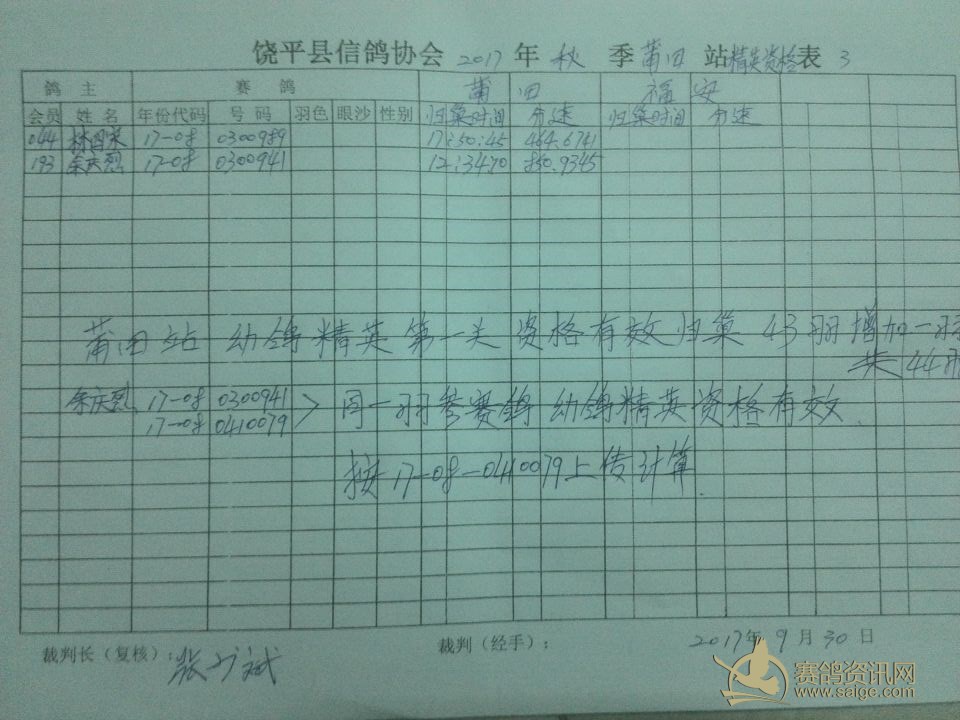 饶平县信鸽协会 2017 年 秋 季 莆田 站 精英资格 表 3
鸽 主 赛 鸽 莆 田 福 安
会员 姓 名 年份代码 号 码 羽色 眼沙 性别 归巢时间 分速 归巢时间 分速
044 17-08 0300989 17:50:45 464.6741
193 余庆烈 17-08 0300941 12:3470 850.9345
莆田站 幼鸽精英第一关 资格有效归巢 43羽增加一羽
共44羽
余庆烈 17-08 0300941 > 同一羽参赛鸽 幼鸽精英资格有效.
17-08 0410079
按 17-08-0410079上传计算.
裁判长(复核): 裁判(经手): 2017年 9 月 30 日
赛鸽资讯网
www.saige.com